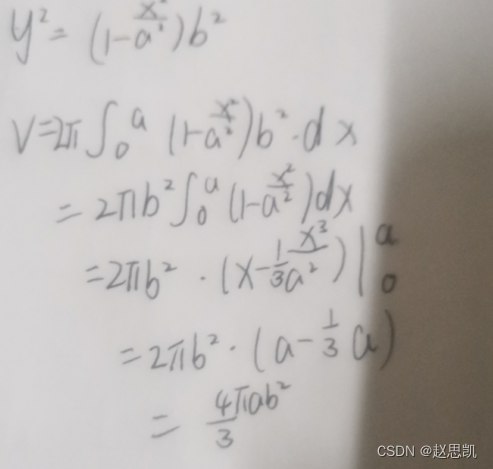 y² = (1-x²/a²)b²
V=2π∫₀ᵃ (1-x²/a²)b²·dx
= 2πb²∫₀ᵃ(1-x²/a²)dx
=2πb²·(x-1/3 x³/a²)|₀ᵃ
=2πb²·(a-1/3 a)
= 4πab²/3
CSDN @赵思凯